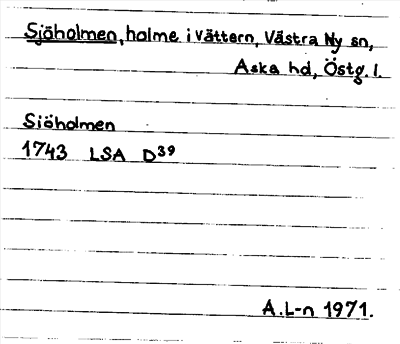 Sjöholmen, holme i Vättern, Västra Ny sn,
Aska hd, Östg. l.
Siöholmen
1743 LSA D39
A.L-n 1971.